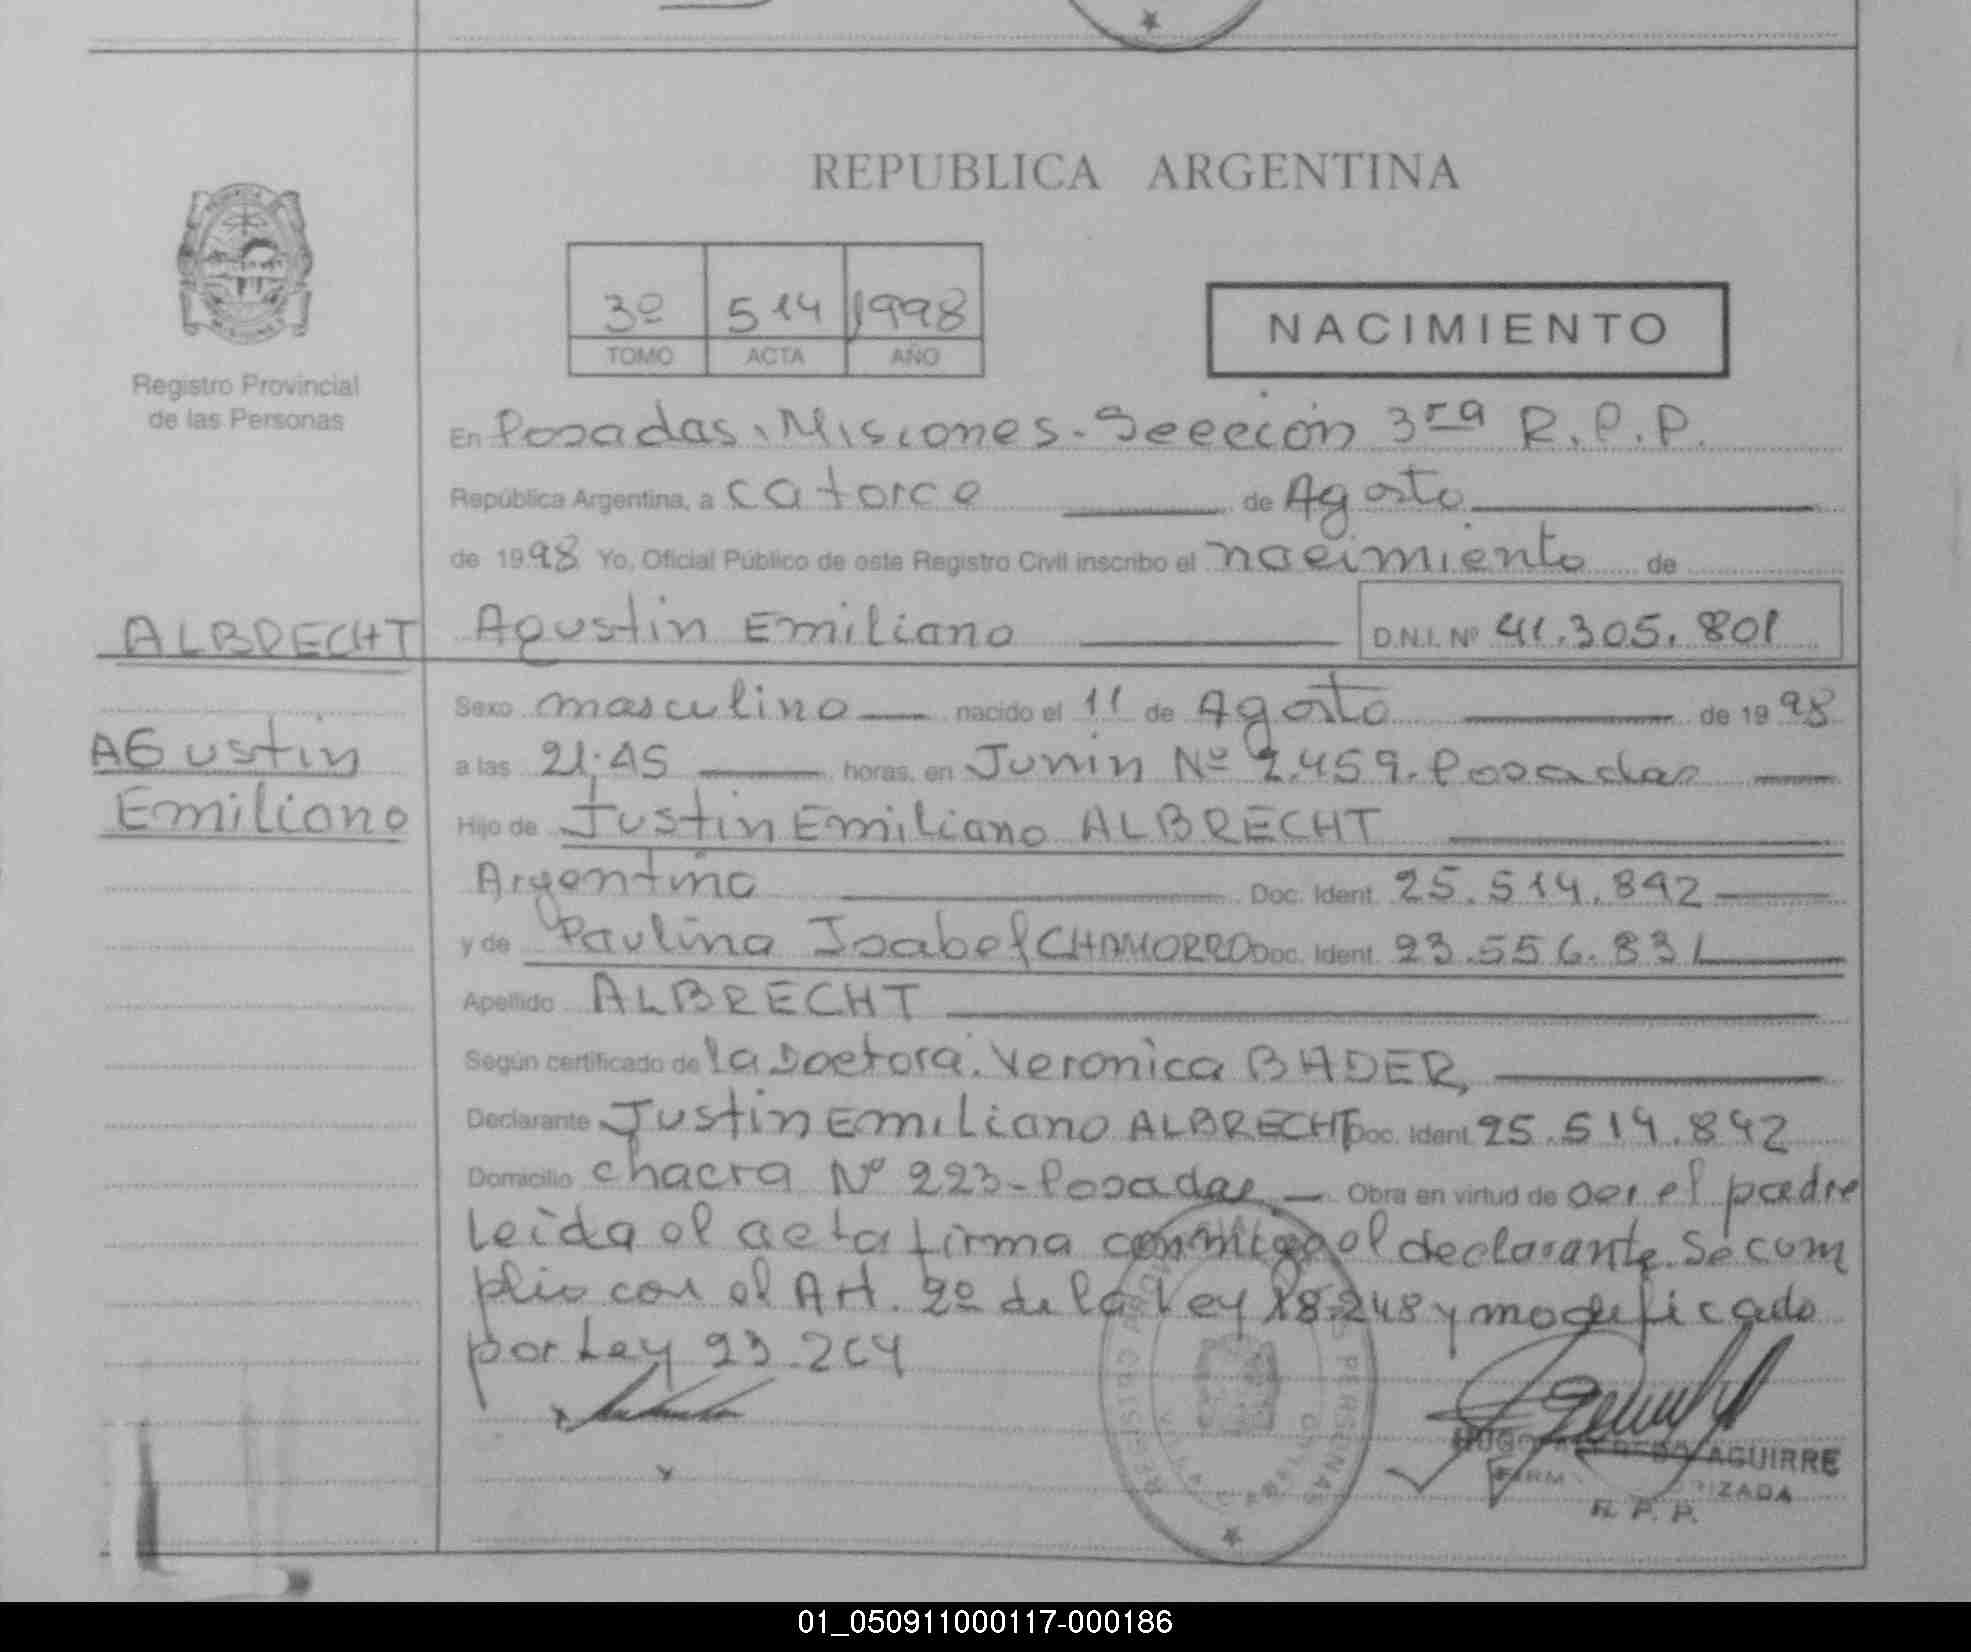 REPUBLICA ARGENTINA
3º 514 1998
TOMO ACTA AÑO
NACIMIENTO
Registro Provincial
de las Personas
En Posadas, Misiones. Sección 3ra R.P.P.
República Argentina, a catorce de Agosto
de 1998 Yo, Oficial Público de este Registro Civil inscribo el nacimiento de
ALBRECHT
Agustin Emiliano D.N.I. Nº 41.305.801
Sexo masculino nacido el 11 de Agosto de 1998
AGustin
a las 21:45 horas, en Junin Nº 2.459. Posadas
Emiliano
Hijo de Justin Emiliano ALBRECHT
Argentino Doc. Ident. 25.514.842
y de Paulina Isabel CHAMORRO Doc. Ident. 23.556.831
Apellido ALBRECHT
Según certificado de la Doctora. Veronica BADER,
Declarante Justin Emiliano ALBRECHT Doc. Ident. 25.514.842
Domicilio chacra Nº 223 - Posadas - Obra en virtud de ser el padre
leida el acta firma conmigo el declarante. Se com
plio con el Art. 2º de la Ley 18.248 y modificado
por Ley 23.264
HUGO AGUIRRE
R. P. P.
01_050911000117-000186